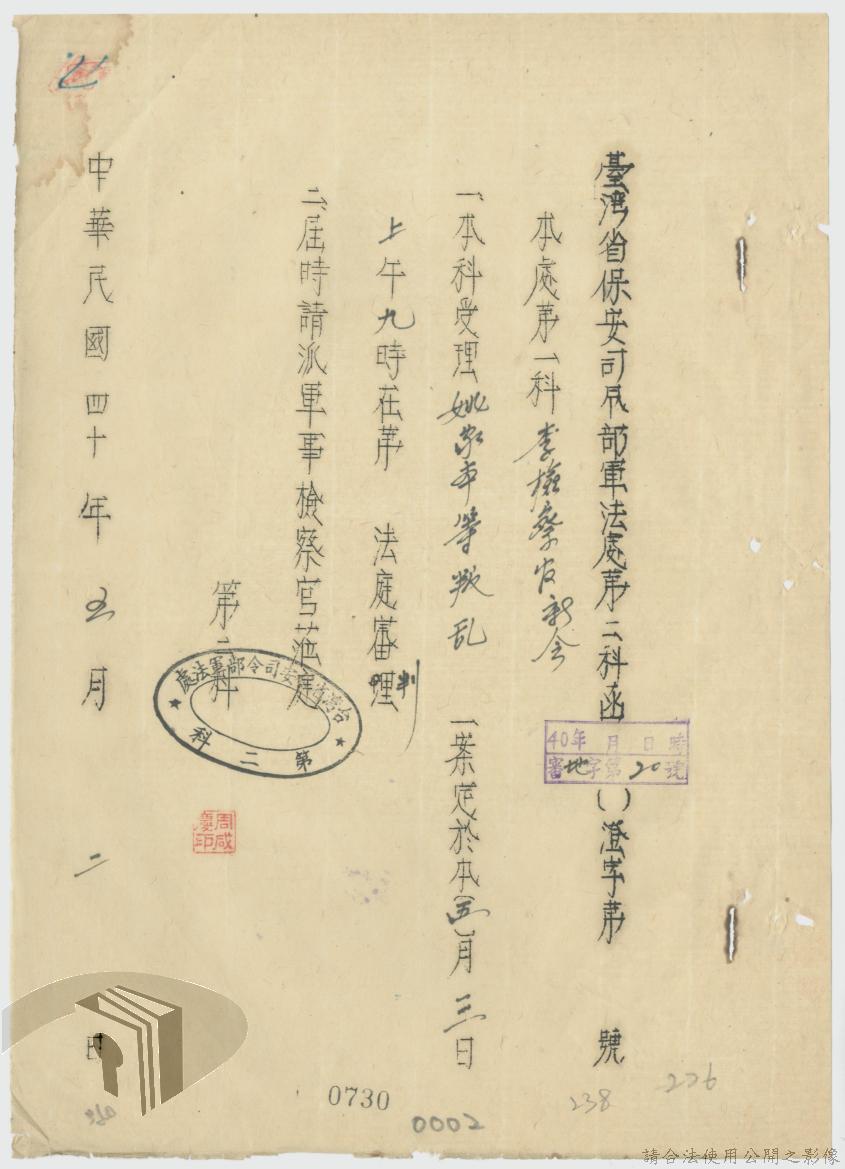 臺灣省保安司令部軍法處第二科函()澄字第 號
40年 月 日 時
審地字第20號
本處第一科 李檢察官新念
一、本科受理姚家本等叛乱 一案定於本(五)月三日
上午九時在第 法庭審判
二、屆時請派軍事檢察官蒞庭
第二科
台灣省保安司令部軍法處
第二科
周咸慶印
中華民國四十年五月二日
0730
0002
238
226
請合法使用公開之影像